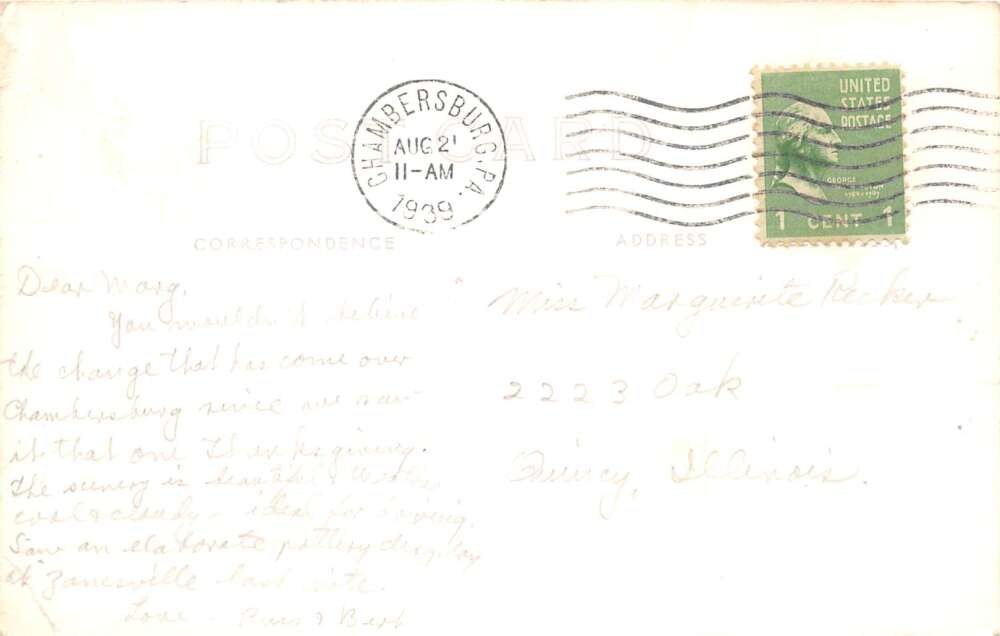 POST CARD
CHAMBERSBURG, PA.
AUG 21
11-AM
1939
UNITED
STATES
POSTAGE
GEORGE
1 CENT 1
CORRESPONDENCE
ADDRESS
Dear Marg,
You wouldn't believe
the change that has come over
Chambersburg since we saw
it that one Thanksgiving.
The scenery is beautiful & Weather
cool & cloudy - ideal for driving.
Saw an elaborate pottery display
at Zanesville last nite.
Love - & Bert
Miss Marguerite
2223 Oak
Quincy, Illinois.